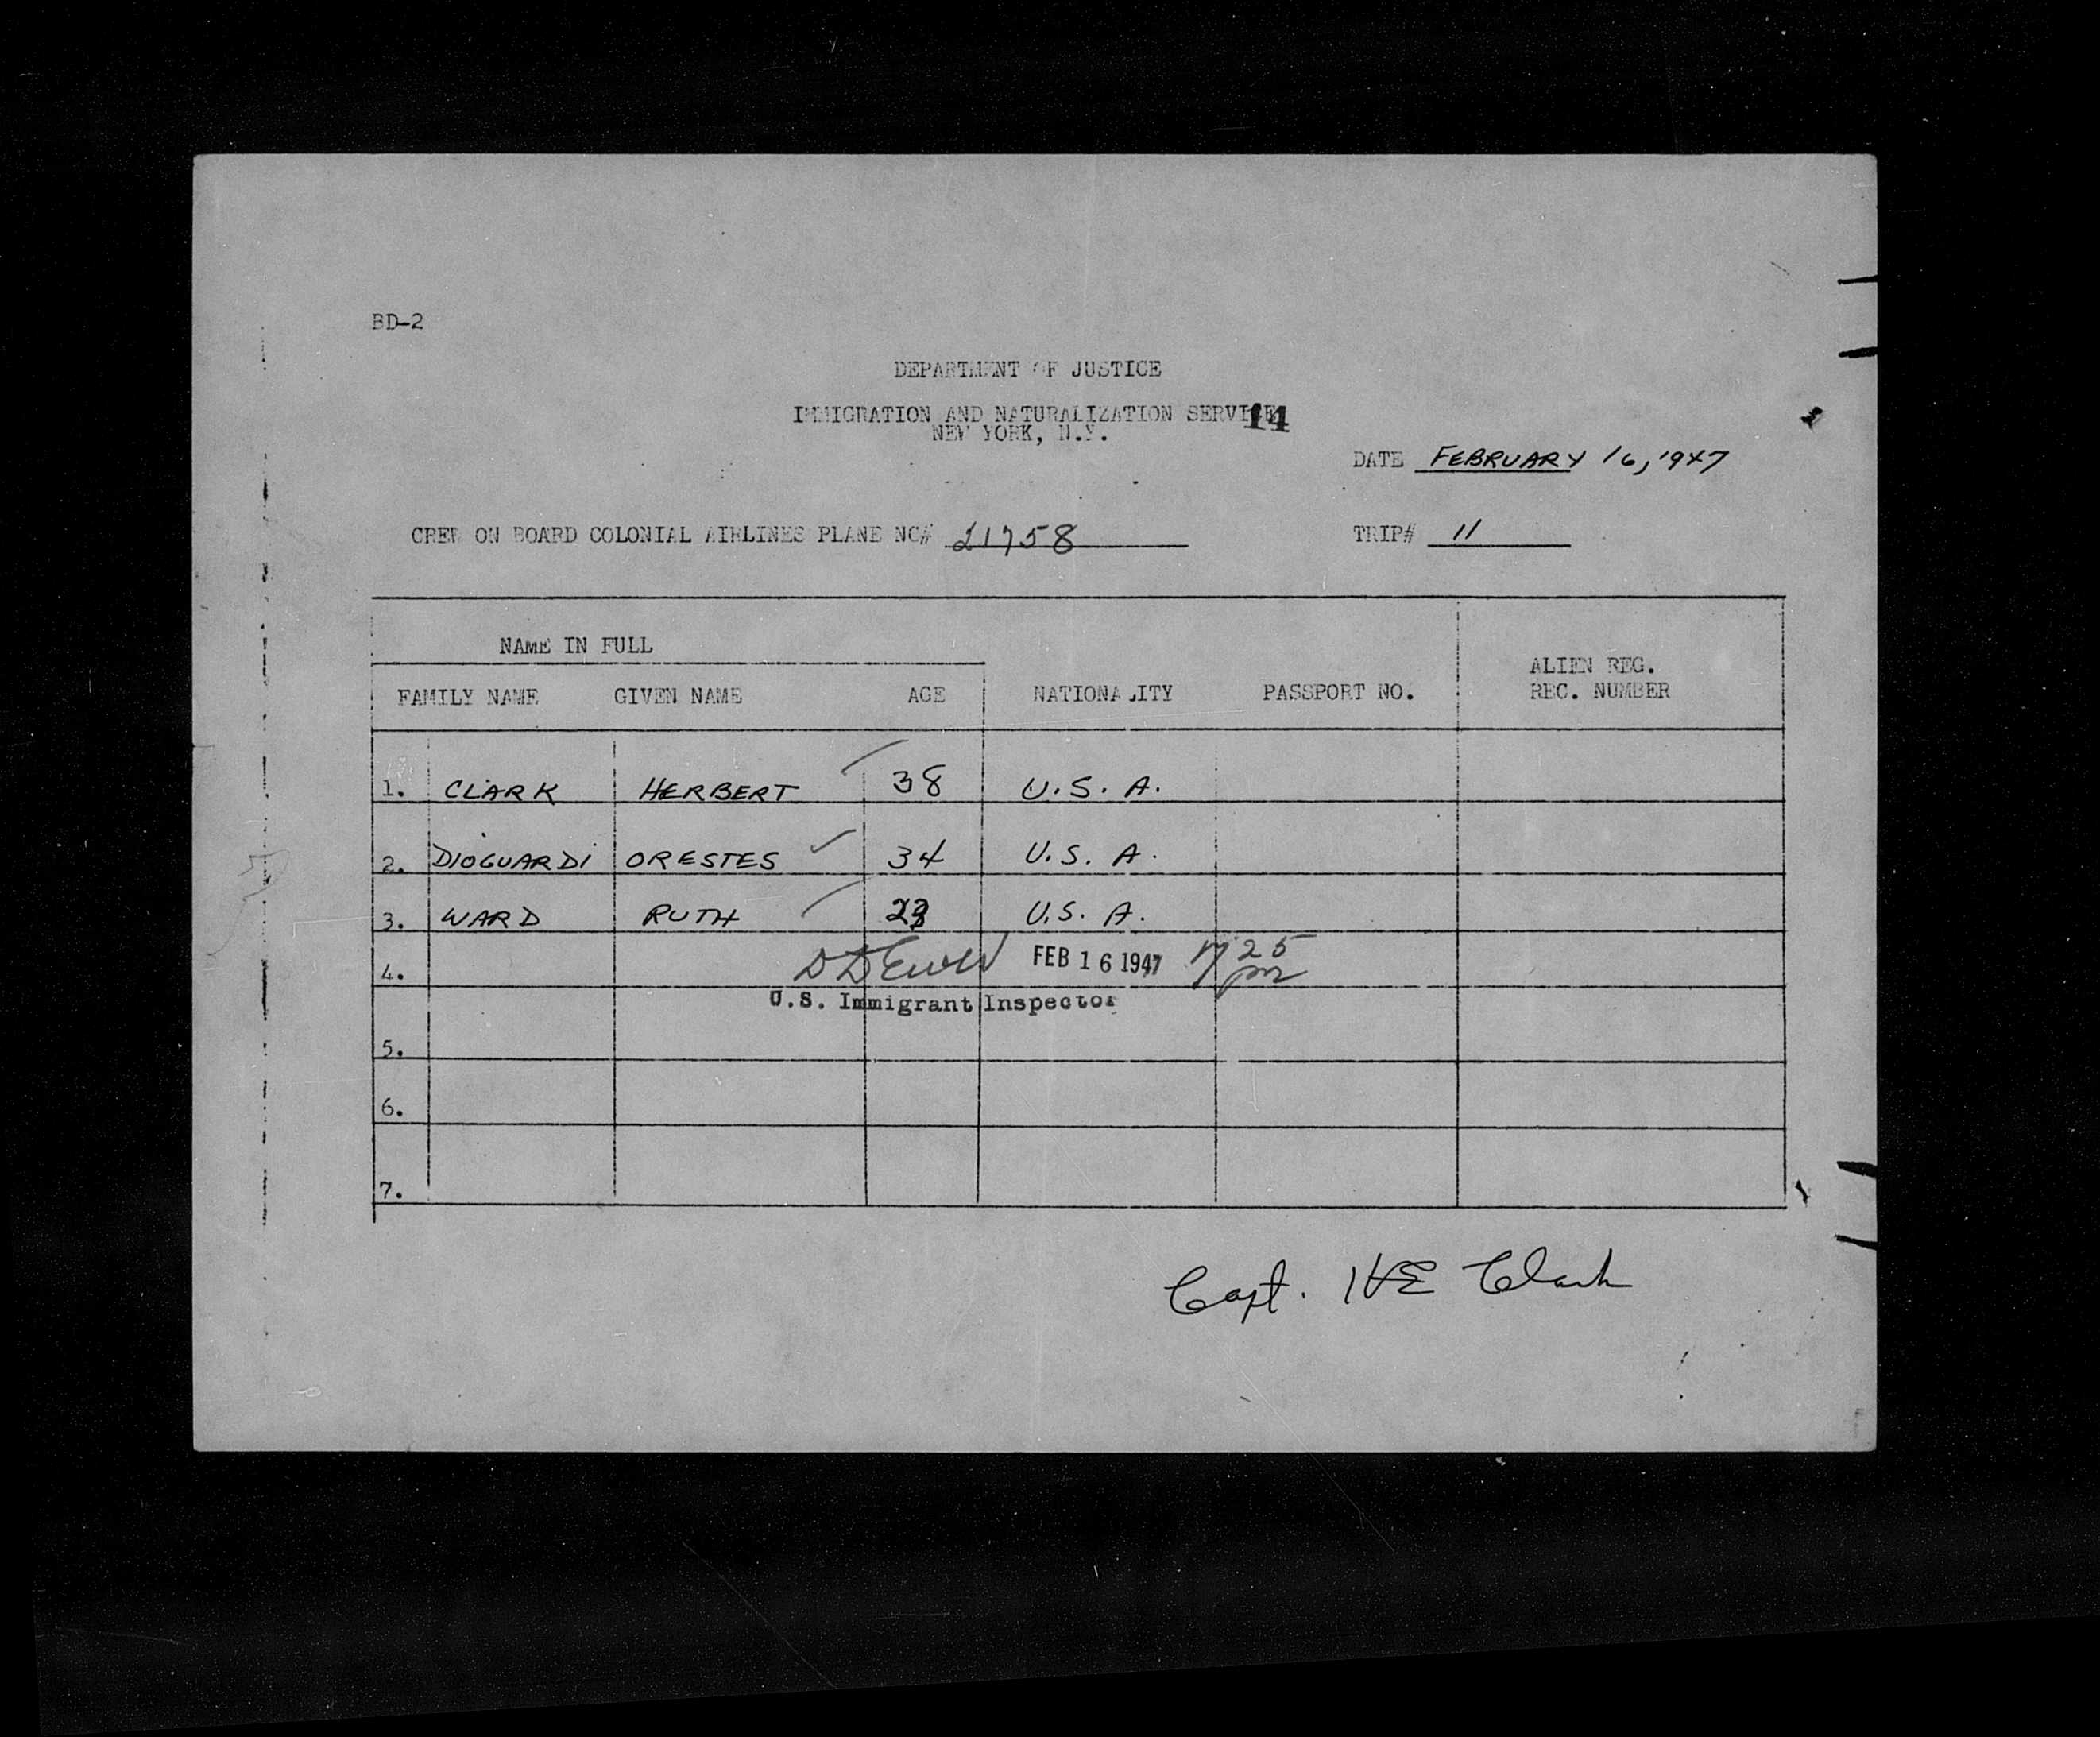 BD-2
DEPARTMENT OF JUSTICE
IMMIGRATION AND NATURALIZATION SERVICE 14
NEW YORK, N.Y.
DATE FEBRUARY 16, 1947
CREW ON BOARD COLONIAL AIRLINES PLANE NC# 21758 TRIP# 11
NAME IN FULL
ALIEN REG.
FAMILY NAME GIVEN NAME AGE NATIONALITY PASSPORT NO. REC. NUMBER
1. CLARK HERBERT 38 U.S. A.
2. DIOGUARDI ORESTES 34 U.S. A.
3. WARD RUTH U.S. A.
4. FEB 16 1947 25 pm
U.S. Immigrant Inspector
5.
6.
7.
Capt. HE Clark